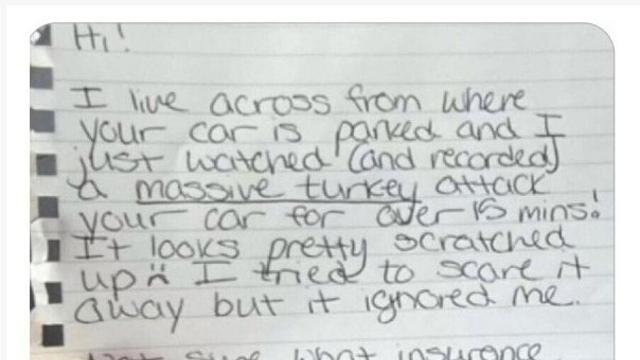 Hi!
I live across from where
your car is parked and I
just watched (and recorded)
a massive turkey attack
your car for over 15 mins!
It looks pretty scratched
up I tried to scare it
away but it ignored me.
Not sure what insurance